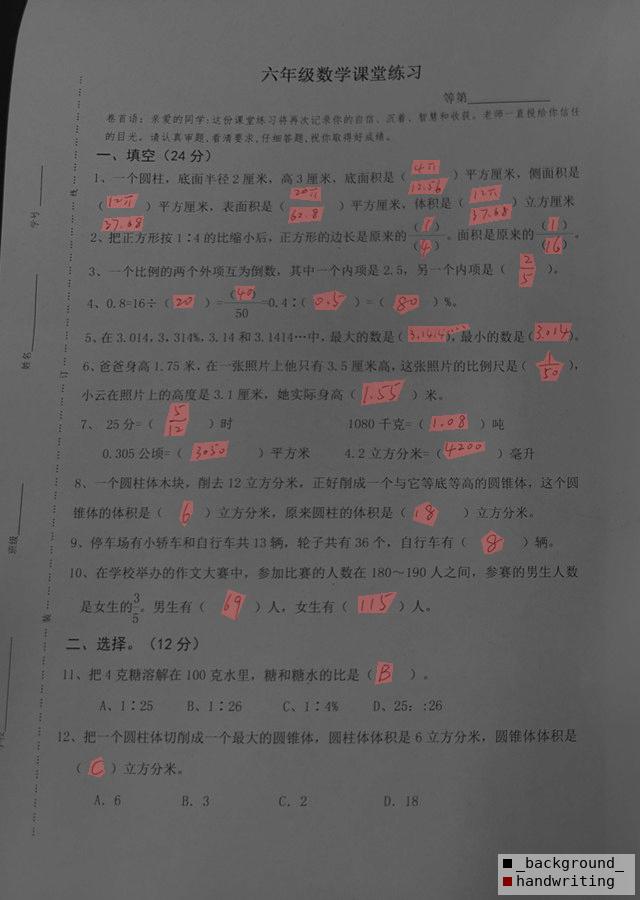 六年级数学课堂练习
等第
卷首语：亲爱的同学:这份课堂练习将再次记录你的自信、沉着、智慧和收获。老师一直投给你信任
的目光。请认真审题,看清要求,仔细答题,祝你取得好成绩。
一、填空（24分）
1、一个圆柱，底面半径2厘米，高3厘米，底面积是（ 4π 12.56 ）平方厘米，侧面积是
（ 12π 37.68 ）平方厘米，表面积是（ 20π 62.8 ）平方厘米，体积是（ 12π 37.68 ）立方厘米
2、把正方形按1∶4的比缩小后，正方形的边长是原来的(1)/(4)。面积是原来的(1)/(16)。
3、一个比例的两个外项互为倒数，其中一个内项是2.5，另一个内项是（ 2/5 ）。
4、0.8=16÷（ 20 ）=(40)/50=0.4∶（ 0.5 ）=（ 80 ）%。
5、在3.014，3，314%，3.14和3.1414…中，最大的数是（3.1414…），最小的数是（3.014）。
6、爸爸身高1.75米，在一张照片上他只有3.5厘米高，这张照片的比例尺是（ 1/50 ），
小云在照片上的高度是3.1厘米，她实际身高（ 1.55 ）米。
7、 25分=（ 5/12 ）时 1080千克=（ 1.08 ）吨
0.305公顷=（ 3050 ）平方米 4.2立方分米=（ 4200 ）毫升
8、一个圆柱体木块，削去12立方分米，正好削成一个与它等底等高的圆锥体，这个圆
锥体的体积是（ 6 ）立方分米，原来圆柱的体积是（ 18 ）立方分米。
9、停车场有小轿车和自行车共13辆，轮子共有36个，自行车有（ 8 ）辆。
10、在学校举办的作文大赛中，参加比赛的人数在180～190人之间，参赛的男生人数
是女生的3/5。男生有（ 69 ）人，女生有（ 115 ）人。
二、选择。（12分）
11、把4克糖溶解在100克水里，糖和糖水的比是（ B ）。
A、1∶25 B、1∶26 C、1∶4% D、25：:26
12、把一个圆柱体切削成一个最大的圆锥体，圆柱体体积是6立方分米，圆锥体体积是
（ C ）立方分米。
A. 6 B. 3 C. 2 D. 18
学号
姓名
班级
线
订
装
_background_
handwriting